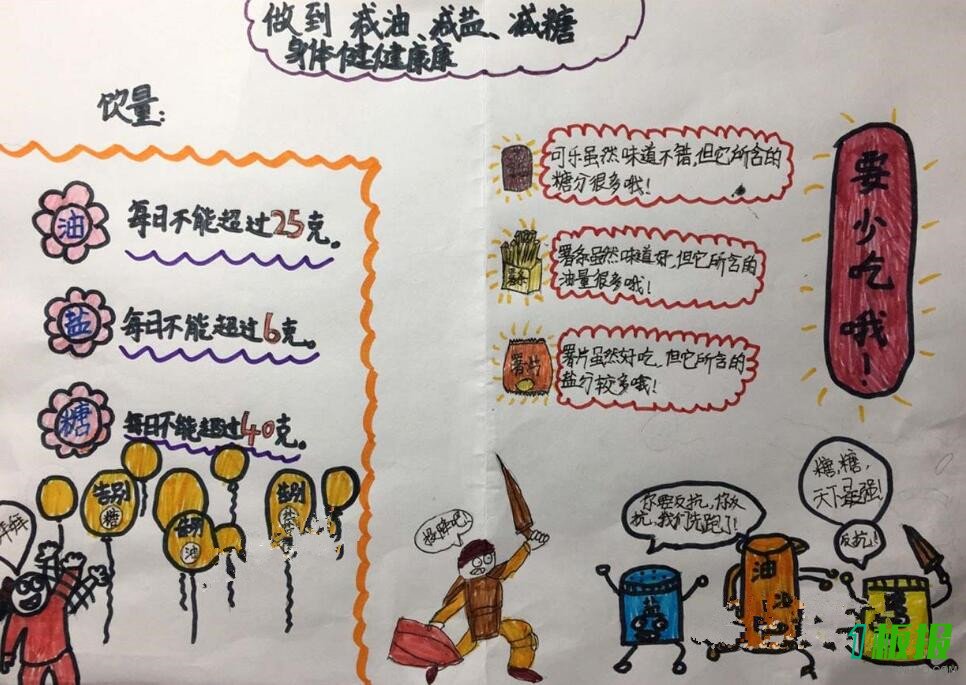 做到 减油、减盐、减糖
身体健健康康
饮量:
油
每日不能超过25克。
盐
每日不能超过6克。
糖
每日不能超过40克。
告别
糖
告别
油
告别
可乐虽然味道不错,但它所含的
糖分很多哦!
薯条虽然味道好,但它所含的
油量很多哦!
薯片
薯片虽然好吃,但它所含的
盐分较多哦!
要少吃哦!
你要反抗,你反
抗,我们先跑了!
糖,糖,
天下最强!
反抗!
盐
油
板报